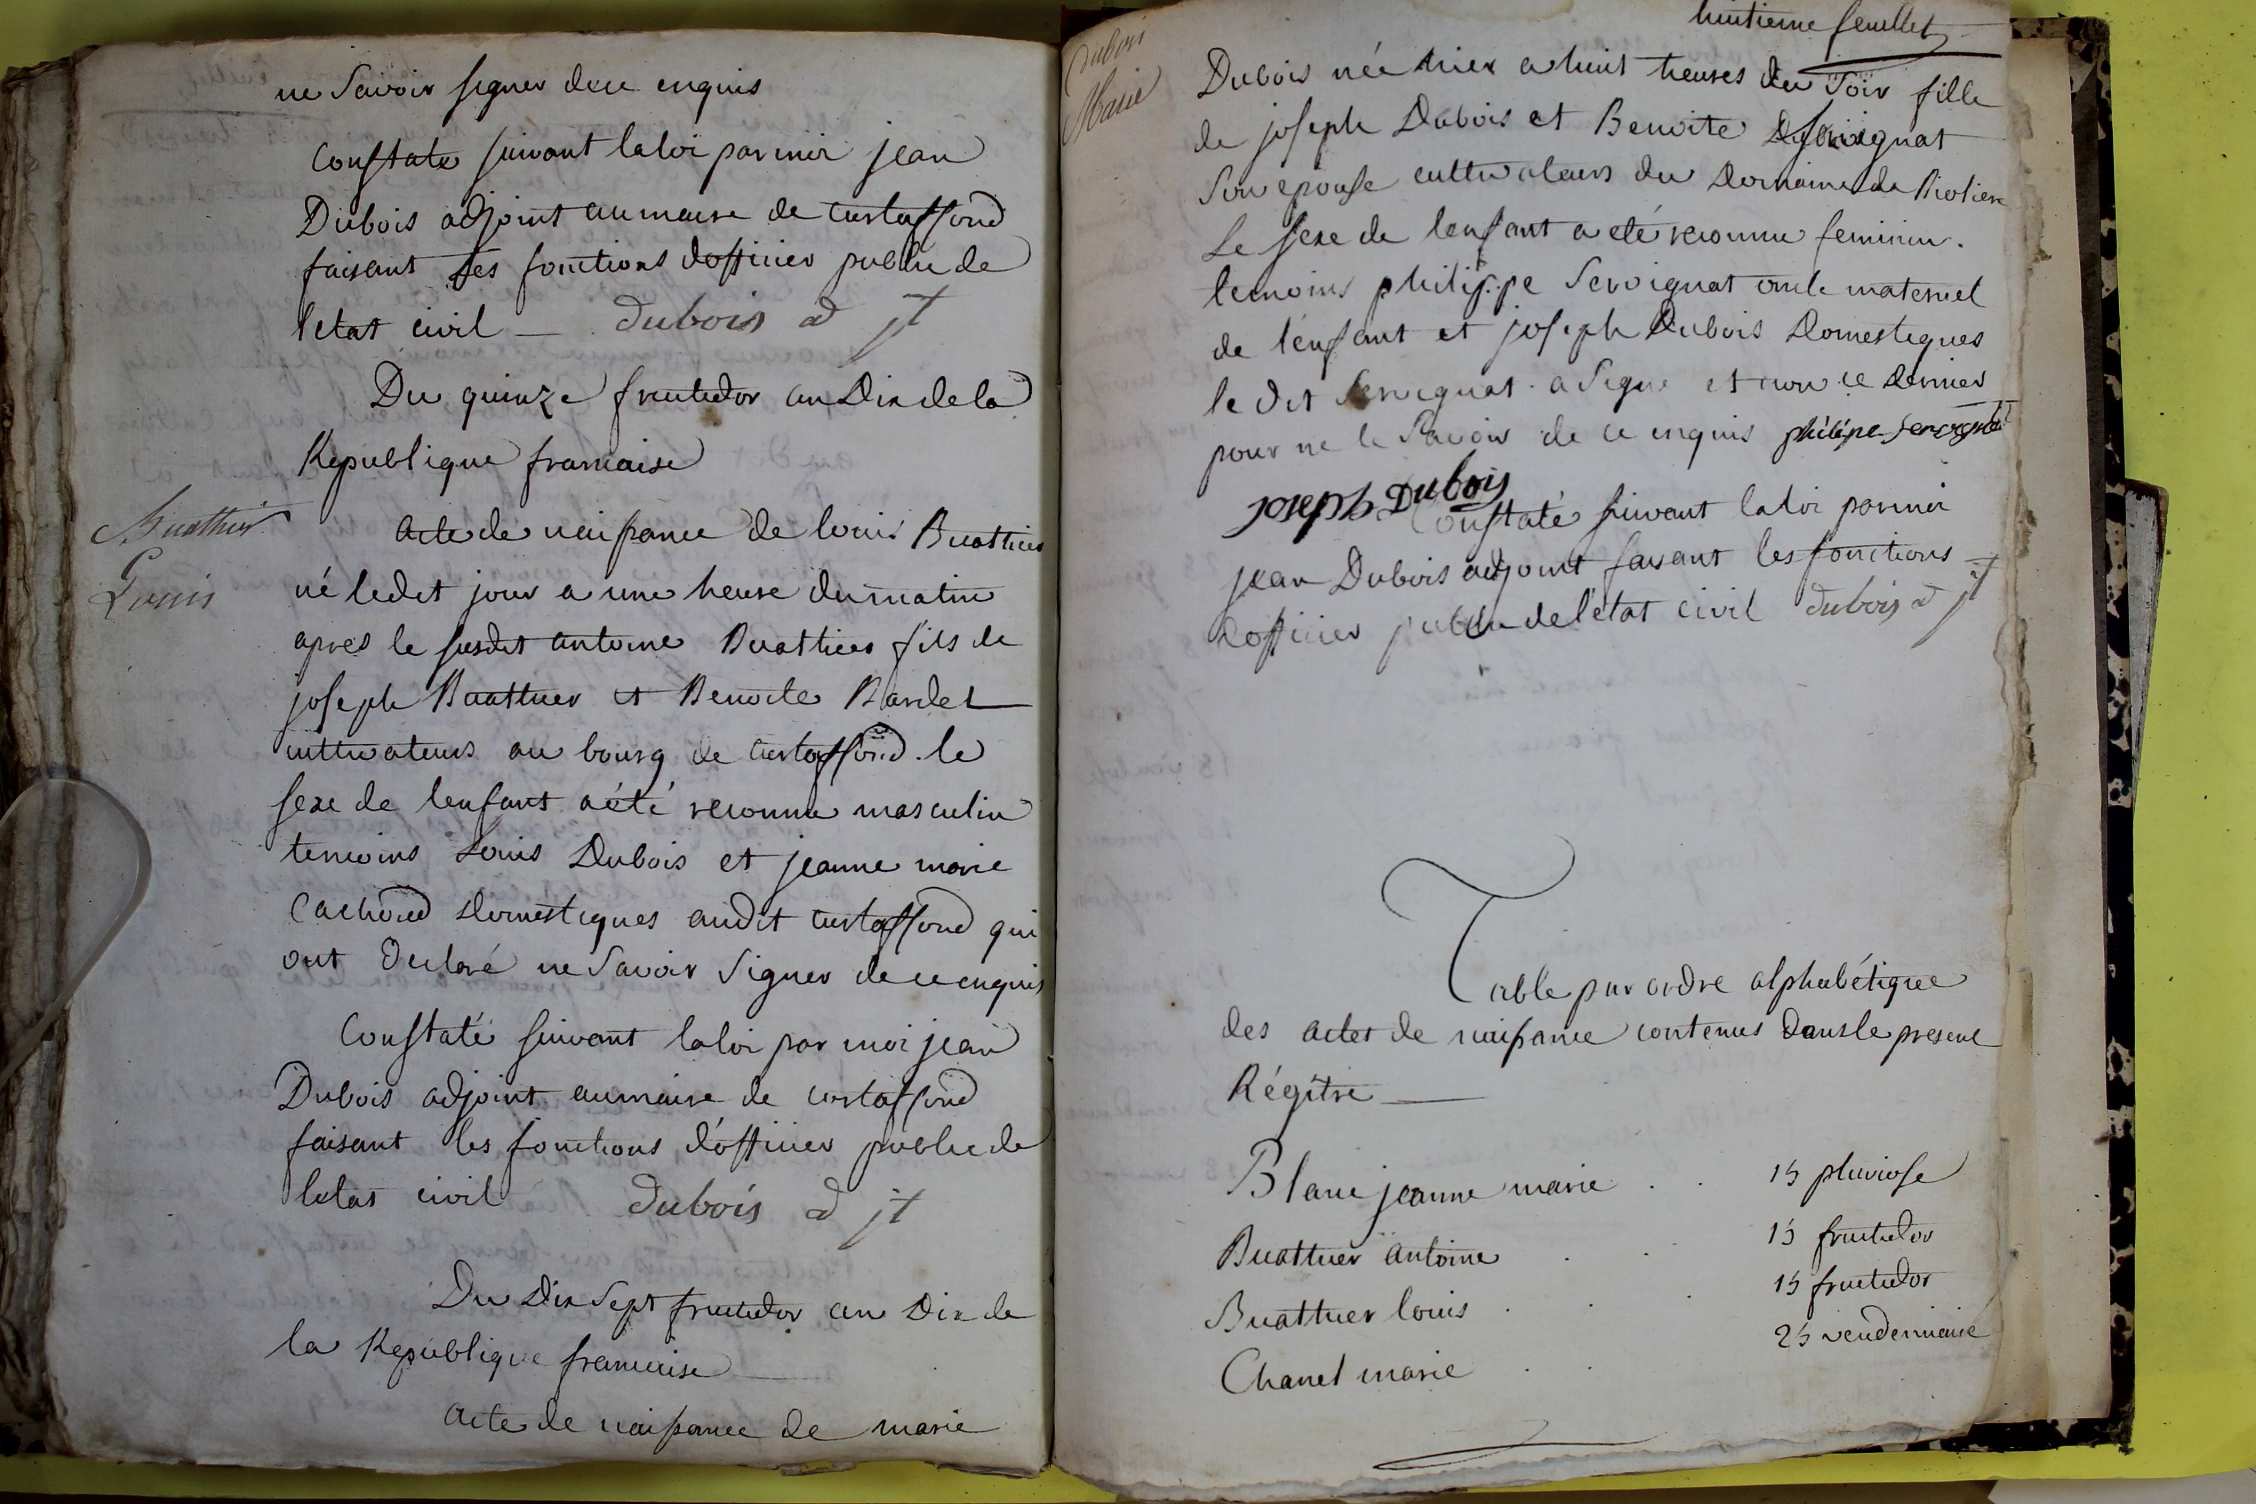 ne Savoir signer dece enquis
Constate suivant laloi parmoi jean
Dubois adjoint aumaire de curtaffond
faisant Les fonctions dofficier public de
letat civil — dubois adjt
Du quinze fructidor an Dix de la
Republique francaise
Buathier
Louis
Acte de naissance de louis Buathier
né ledit jour a une heure dumatin
apres le susdit antoine Buathier fils de
joseph Buathier et Benoite Bardet
cultivateurs au bourg de curtaffond. le
sexe de lenfant a été reconnu masculin
temoins Louis Dubois et jeanne marie
Cachoud Domestiques audit curtaffond qui
ont Declaré ne Savoir Signer de ce enquis
Constaté suivant laloi par moi jean
Dubois adjoint aumaire de curtaffond
faisant les fonctions d'officier public de
letat civil dubois adjt
Du Dix Sept fructidor an Dix de
la Republique francaise
Acte de naissance de marie
huitieme feuillet
Dubois
Marie
Dubois née hier a huit heures du Soir fille
de joseph Dubois et Benoite Servignat
Son epouse cultivateurs du Domaine de
Le sexe de lenfant a eté reconnu feminin.
temoins philippe Servignat oncle maternel
de l'enfant et joseph Dubois Domestiques
le dit Servignat a Signé et non ce dernier
pour ne le Savoir de ce enquis philipe servignat
joseph Dubois
Constaté suivant laloi parmoi
jean Dubois adjoint faisant les fonctions
dofficier public de l'etat civil dubois adjt
Table par ordre alphabétique
des actes de naissance contenus dans le present
Régitre —
Blanc jeanne marie . . 15 pluviose
Buathier antoine . . 15 fructidor
Buathier louis . . . 15 fructidor
Chanel marie . . 25 vendemiaire